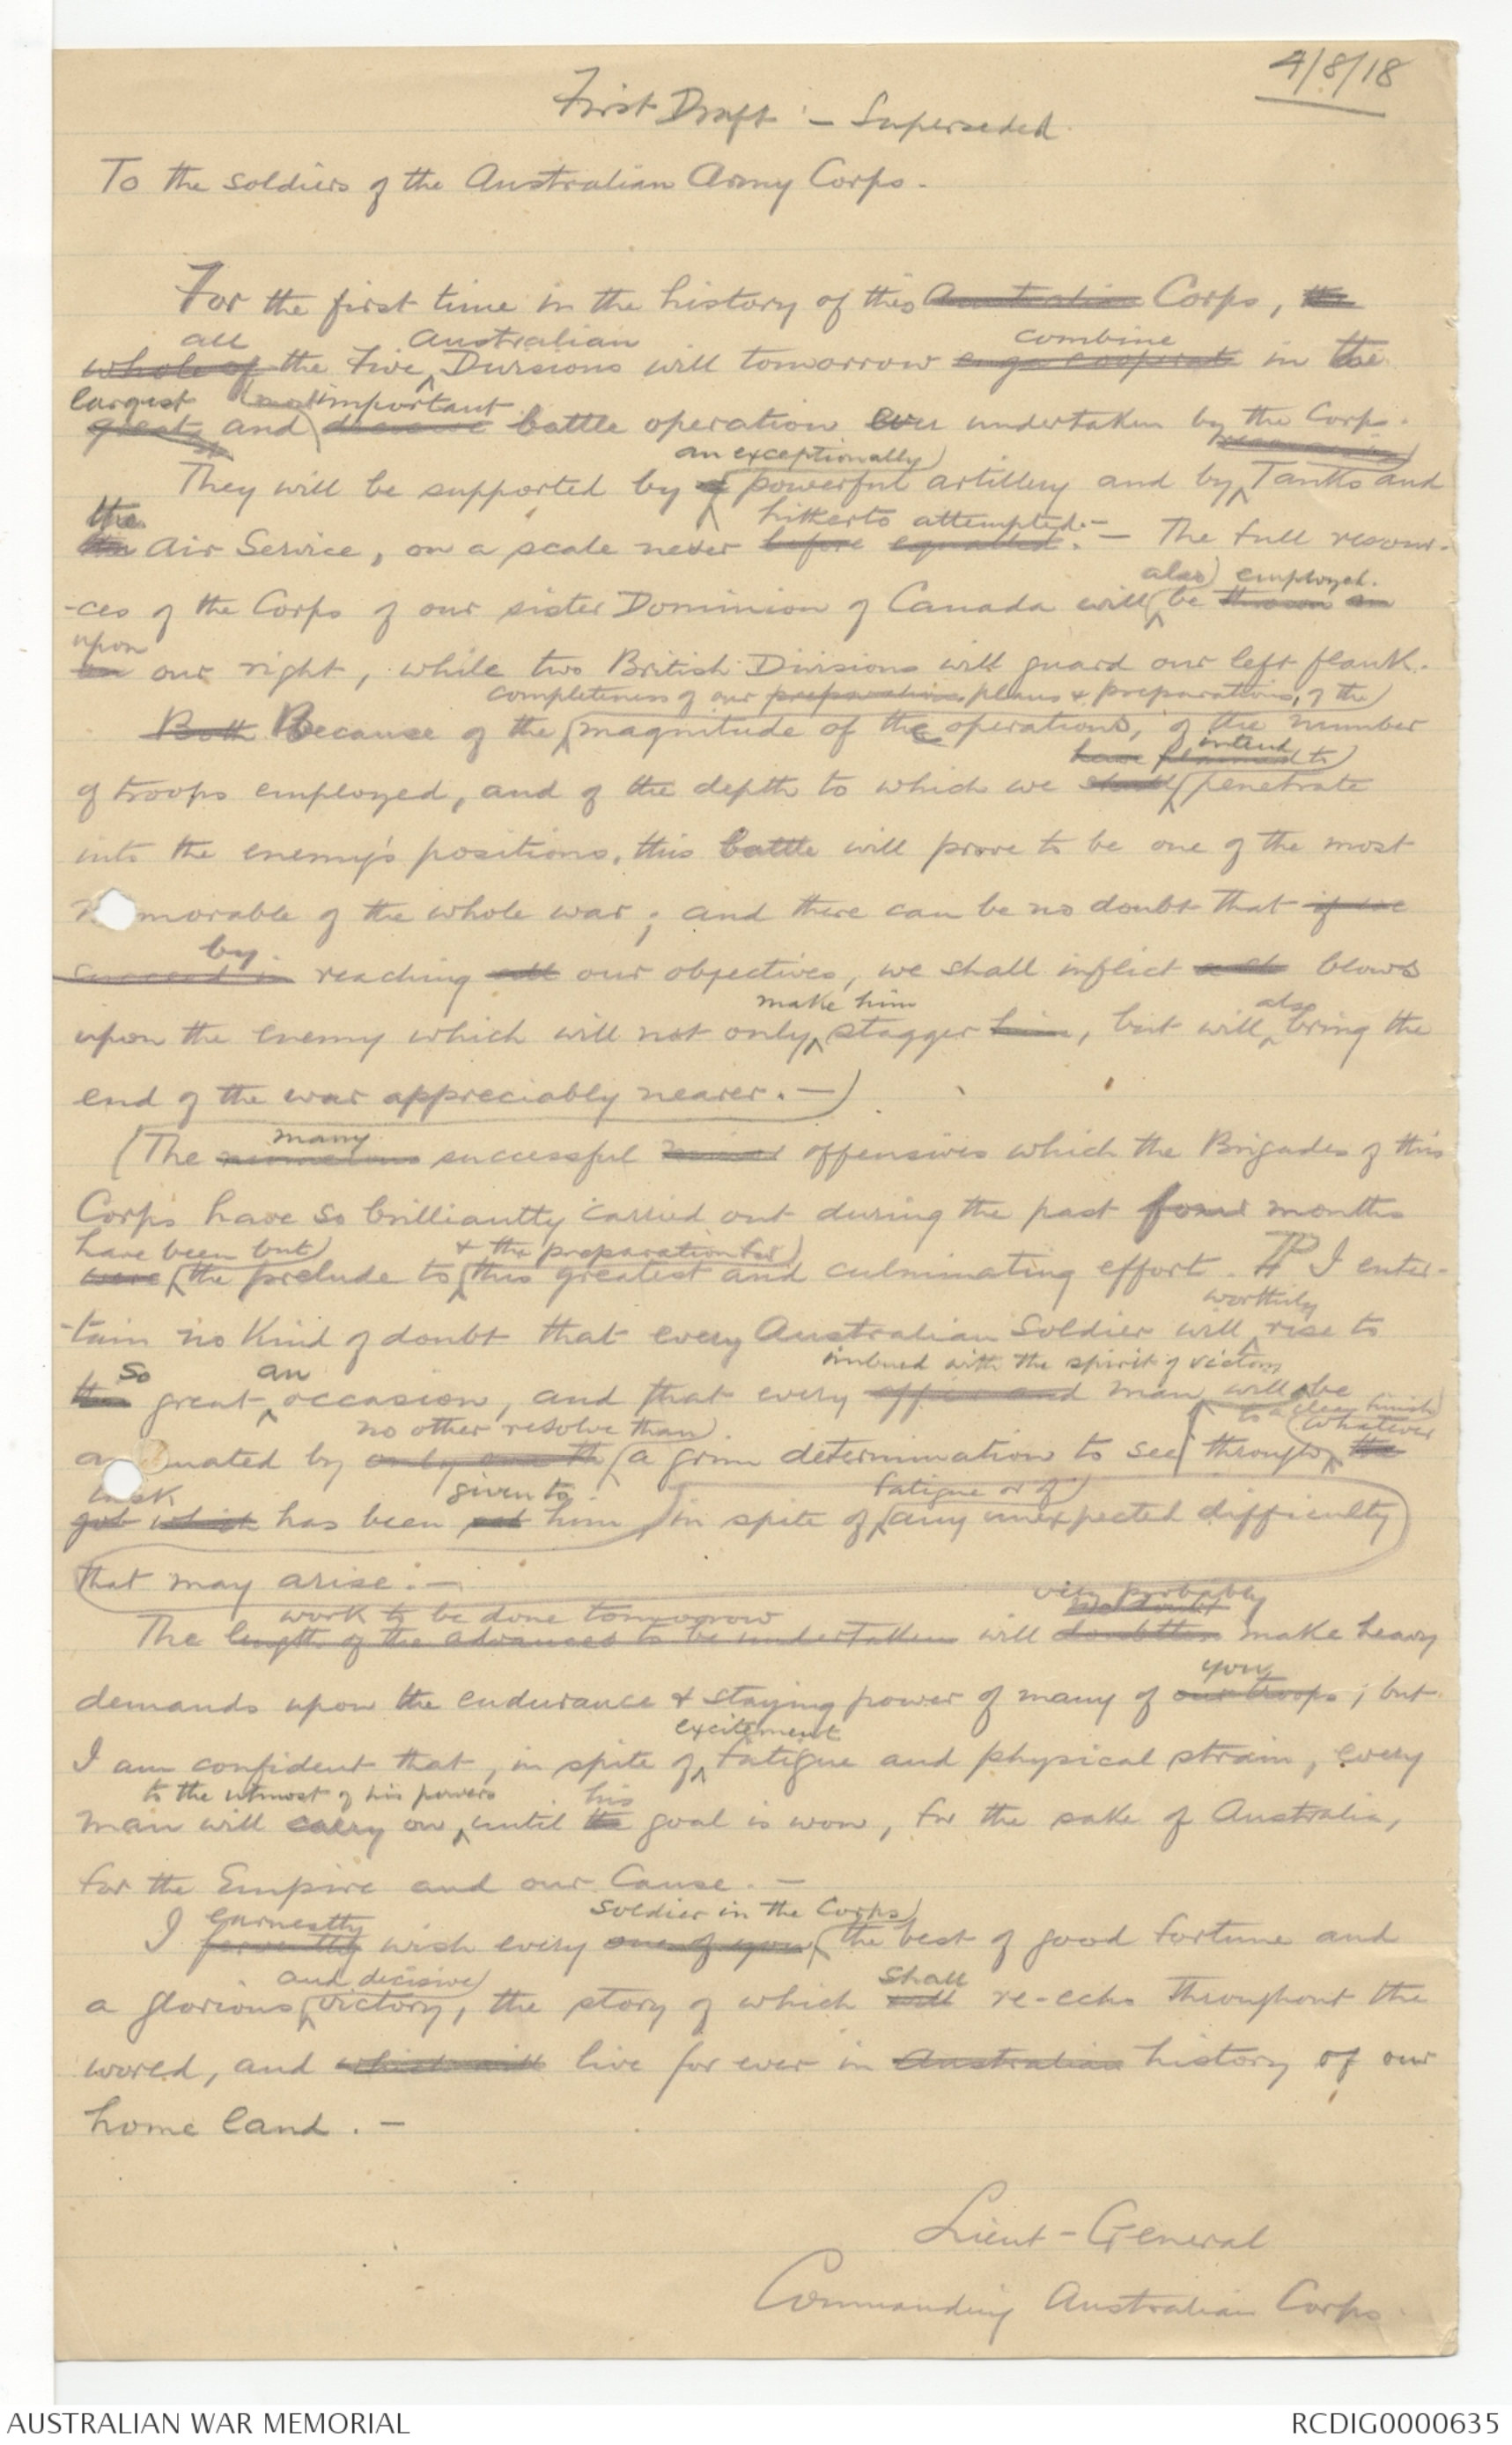 4/8/18
First Draft :- Superseded
To the soldiers of the Australian Army Corps.
For the first time in the history of this Australian Corps, the
all Australian combine
whole of the five Divisions will tomorrow cooperate in the
largest most important
great and decisive battle operation ever undertaken by the Corps.
an exceptionally
They will be supported by a powerful artillery and by Tanks and
the hitherto attempted.-
Air Service, on a scale never before equalled. - The full resour-
also employed.
-ces of the Corps of our sister Dominion of Canada will be thrown in
upon
on our right, while two British Divisions will guard our left flank.
completeness of our preparations plans & preparations, of the
Both Because of the magnitude of the operations, of the number
intend to
have planned
of troops employed, and of the depth to which we shall penetrate
into the enemy's positions, this battle will prove to be one of the most
morable of the whole war; and there can be no doubt that if we
by
succeed in reaching all our objectives, we shall inflict such blows
make him also
upon the enemy which will not only stagger him, but will bring the
end of the war appreciably nearer. -
many
The numerous successful minor offensives which the Brigades of this
Corps have so brilliantly carried out during the past four months
have been but & the preparation for
were the prelude to this greatest and culminating effort. I enter-
worthily
-tain no kind of doubt that every Australian soldier will rise to
so an imbued with the spirit of victory
this great occasion, and that every officer and man will be
to a clean finish
no other resolve than whatever
a uated by only one th a grim determination to see through the
task given to
job which has been set him, in spite of any unexpected difficulty
fatigue or of
that may arise. -
work to be done tomorrow very probably
no doubt
The length of the advances to be undertaken will doubtless make heavy
you
demands upon the endurance & staying power of many of our troops; but
excitement
I am confident that, in spite of fatigue and physical strain, every
to the utmost of his powers his
man will carry on until the goal is won, for the sake of Australia,
for the Empire and our Cause. -
earnestly soldier in the Corps
I fervently wish every one of you the best of good fortune and
and decisive shall
a glorious victory, the story of which will re-echo throughout the
world, and which will live for ever in Australian history of our
home land. -
Lieut-General
Commanding Australian Corps.
AUSTRALIAN WAR MEMORIAL
RCDIG0000635